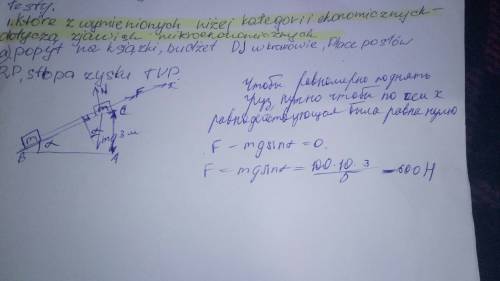 testy.
1. które z wymienionych niżej kategorii ekonomicznych
dotyczą zjawisk mikroekonomicznych
a) popyt na książki, budżet DJ w Krakowie, płace posłów
RP, stopa zysku TVP.
N F x
m C
m α mg 3 м
B α A
Чтобы равномерно поднять
груз, нужно чтобы по оси x
равнодействующая была равна нулю
F - mgsinα = 0.
F = mgsinα = 100·10·3 / 5 = 600 Н